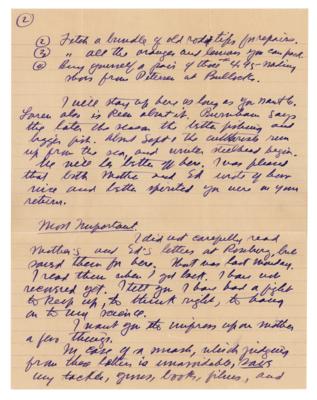 (2)
(2) Fetch a bundle of old rod tips for repairs.
(3) " all the oranges and lemons you can pack.
(4) Bring yourself a pair of those 4.45 walking
shoes from Peterson at Bullocks.
I will stay up here as long as you want to.
Loren also is keen about it. Burnham says
the later the season the better fishing and
bigger fish. About Sept 1 the cutthroats run
up from the sea and winter steelhead begin.
We will be better off here. I was pleased
that both Mother and Ed wrote of how
nice and better spirited you were on your
return.
Most Important.
I did not carefully read
Mother's and Ed's letters at Roseburg, but
saved them for here. That was last Monday.
I read them when I got back. I have not
recovered yet. I tell you I have had a fight
to keep up, to think right, to hang
on to my science.
I want you to impress upon mother
a few things.
In case of a smash, which judging
from these letters is unavoidable, save
my tackle, guns, books, films, and